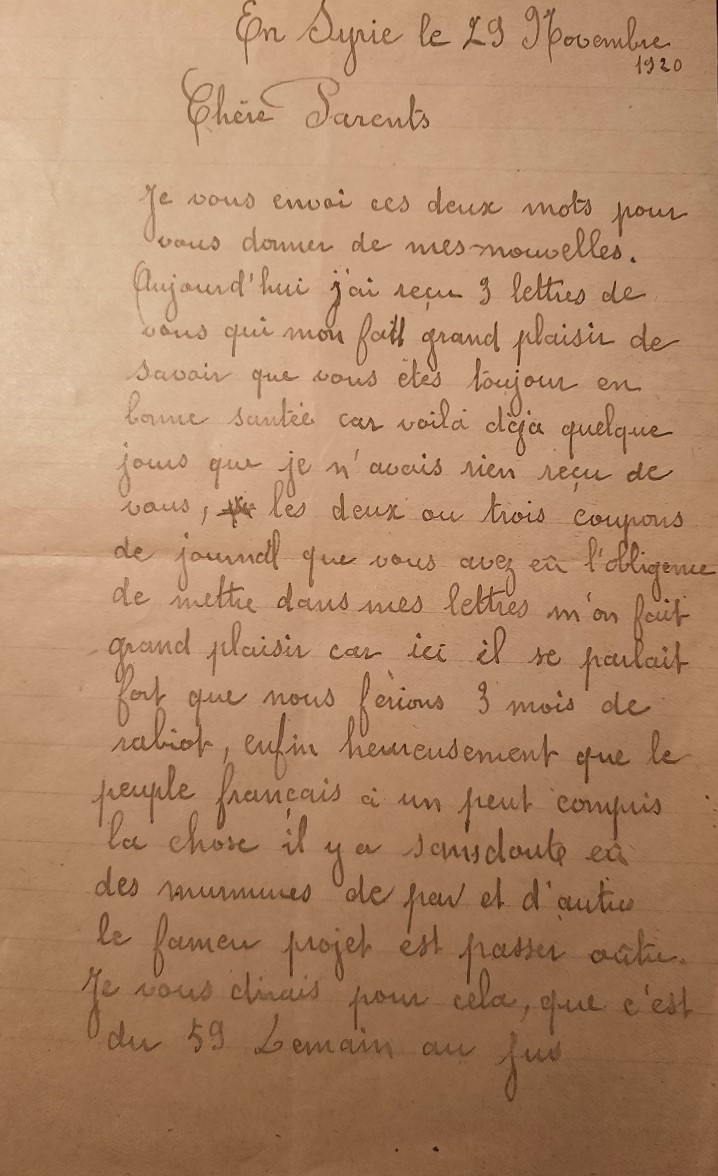 En Syrie le 29 Novembre
1920
Chère Parents
Je vous envoi ces deux mots pour
vous donner de mes nouvelles.
Aujourd'hui j'ai reçu 3 lettres de
vous qui mon fait grand plaisir de
savoir que vous êtes toujour en
bonne santée car voilà déja quelque
jours que je n'avais rien reçu de
vous, les deux ou trois coupons
de journal que vous avez eû l'obligence
de mettre dans mes lettres m'on fait
grand plaisir car ici il se parlait
fort que nous ferions 3 mois de
rabiot, enfin heureusement que le
peuple français à un peut compris
la chose il y a sansdoute eû
des murmures de par et d'autre
le fameu projet est passer oûtre.
Je vous dirais pour cela, que c'est
du 59 Demain au jus